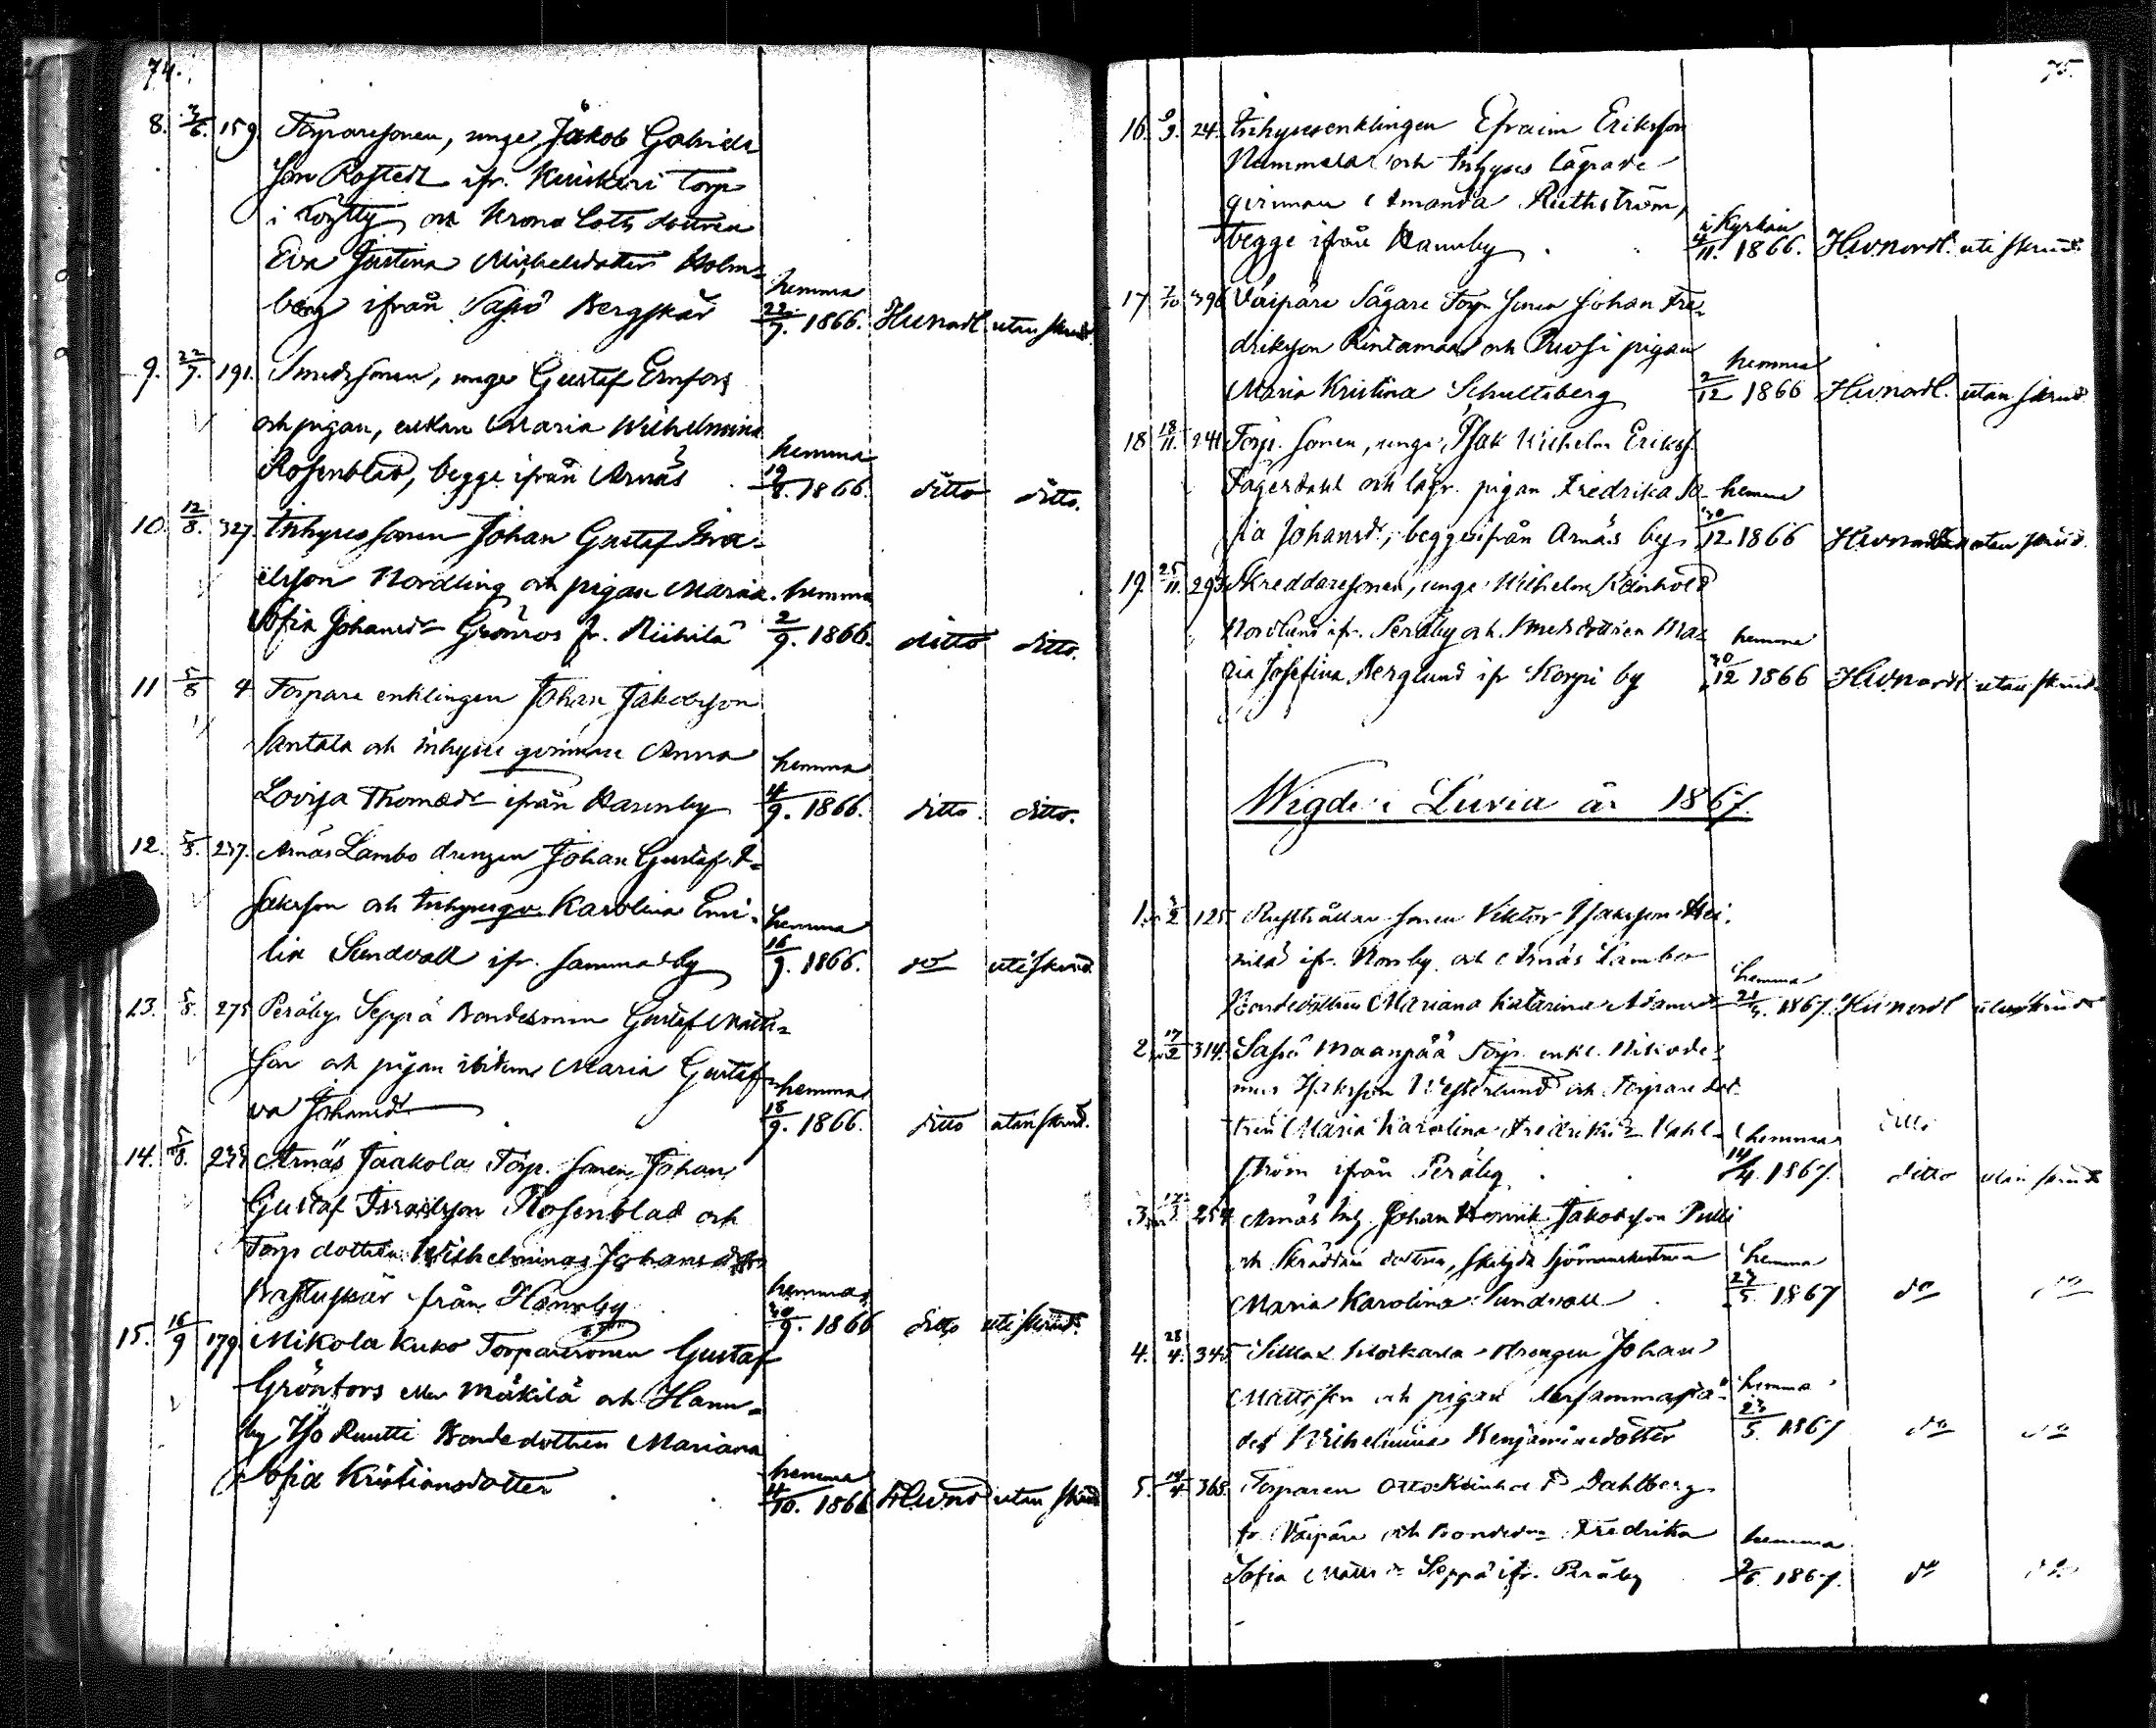 74.
8. 3/6. 159. Torparesonen, unge Jakob Gabriels
son Rostedt ifr. Kuuskeri torp
i Löytty och Krono Lots dottren
Eva Justina Michelsdotter Holm-
berg ifrån Sassö Bergskär hemma 22/7. 1866. Hllnordl. utan skrud.
9. 22/7. 191. Smedssonen, unge Gustaf Ernfors
och pigan, enkan Maria Wilhelmina
Rosenblad, begge ifrån Arnäs hemma 19/8. 1866. ditto ditto.
10. 12/8. 327. Inhyses sonen Johan Gustaf Isra-
elsson Nordling och pigan Maria
Sofia Johansdr Grönroos fr. Niihilä hemma 2/9. 1866. ditto ditto.
11 5/8 4 Torpare enklingen Johan Jakobsson
Santala och inhyses qvinnan Anna
Lovisa Thomasdr ifrån Hannby hemma 4/9. 1866. ditto. ditto.
12. 5/8. 237. Arnäs Lambo drengen Johan Gustaf I-
saksson och Inhysesqv. Karolina Emi-
lia Sundvall ifr. samma by hemma 16/9. 1866. do uti skrud
13. 5/8. 275 Peräby Seppä Bondesonen Gustaf Matts-
son och pigan ibidem Maria Gustaf-
va Johansdr hemma 18/9. 1866. ditto utan skrud.
14. 5/8. 235 Arnäs Jaakola Torp. sonen Johan
Gustaf Israelsson Rosenblad och
Torp dottren Wilhelmina Johansdotter
Bastuskär från Hannby hemma 30/9. 1866 ditto uti skrud.
15. 16/9 179. Mikola Kuko Torparesonen Gustaf
Grönfors eller Mäkilä och Hann-
by Iso Ruutti Bondedottren Mariana
Sofia Kristiansdotter hemma 4/10. 1866 Hllnord utan skrud
75.
16. 9/9. 24. Inhysesenklingen Efraim Eriksson
Nummela och Inhyses lägrade
qvinnan Amanda Ruthström,
begge ifrån Hannby i Kyrkan 4/11. 1866. Hllnordl. uti skrud.
17 7/10 396 Väipäre Sågare Torp sonen Johan Fre-
driksson Rintamaa och Ruosi pigan
Maria Kristina Schultsberg hemma 2/12 1866 Hllnordl. utan skrud
18 18/11. 241 Torp. sonen, unge, Isak Wilhelm Erikss.
Fägerdahl och lägr. pigan Fredrika So-
fia Johansdr, begge ifrån Arnäs by hemma 30/12 1866 utan skrud.
19. 25/11. 293 Skreddaresonen, unge Wilhelm Reinhold
Nordlund ifr. Peräby och Smedsdottren Ma-
ria Josefina Berglund ifr Korpi by hemma 30/12 1866 Hllnordl utan skrud
Wigde i Luvia år 1867.
1. 3/2 125. Rusthållare sonen Viktor Isaksson Hei-
nilä ifr. Norrby och Arnäs Lambo
Bondedottren Mariana Katarina Adamsdr hemma 21/3. 1867. Hllnordl utan skrud
2. 17/2 314. Sassö Maanpää Torp. enkl. Nikode-
mus Isaksson Westerlund och Torpare dot-
tren Maria Karolina Fredriksdr Dahl- ditto
ström ifrån Peräby hemma 14/4. 1867. ditto utan skrud
3. 17/3 254 Arnäs Inh. Johan Henrik Jakobsson Pulli
och Skräddare dottren, skiljda Sjömanshustrun
Maria Karolina Sundvall hemma 23/5. 1867 do do
4. 28/4. 345 drengen Johan
Mattsson och pigan dersammastä-
des Wilhelmina Benjaminsdotter hemma 23/5. 1867 do do
5. 14/4 368. Torparen Otto Reinhold Dahlberg
fr. Väipäre och Bondedr Fredrika
Sofia Mattsdr Seppä ifr. Peräby hemma 2/6. 1867. do do